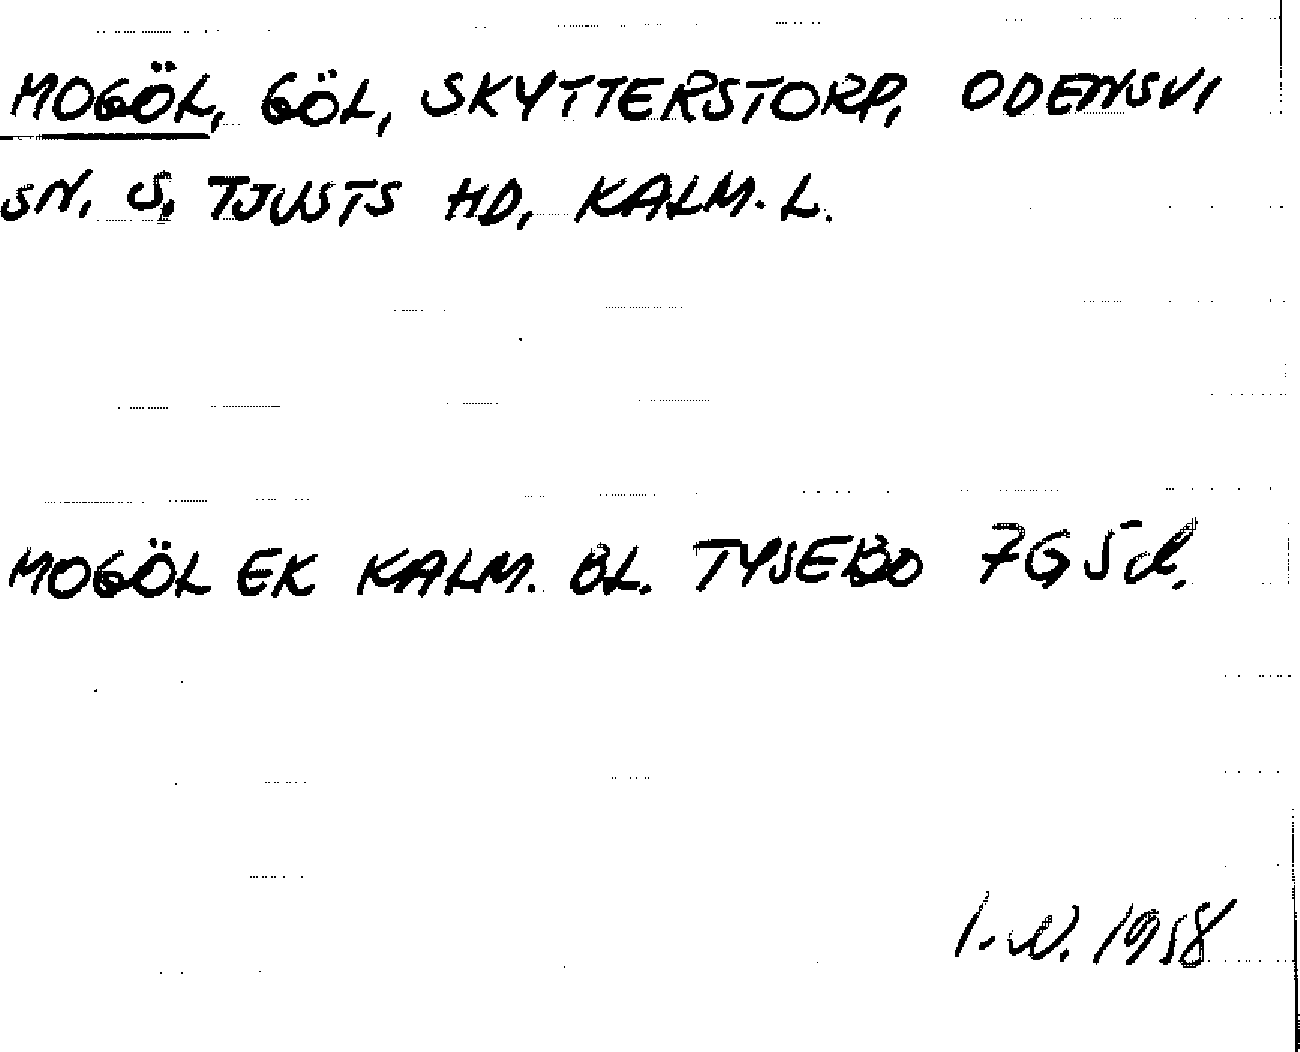 MOGÖL, GÖL, SKYTTERSTORP, ODENSVI
SN. S. TJUSTS HD, KALM. L.
MOGÖL EK KALM. BL. TYSEBO 7G5d.
1958